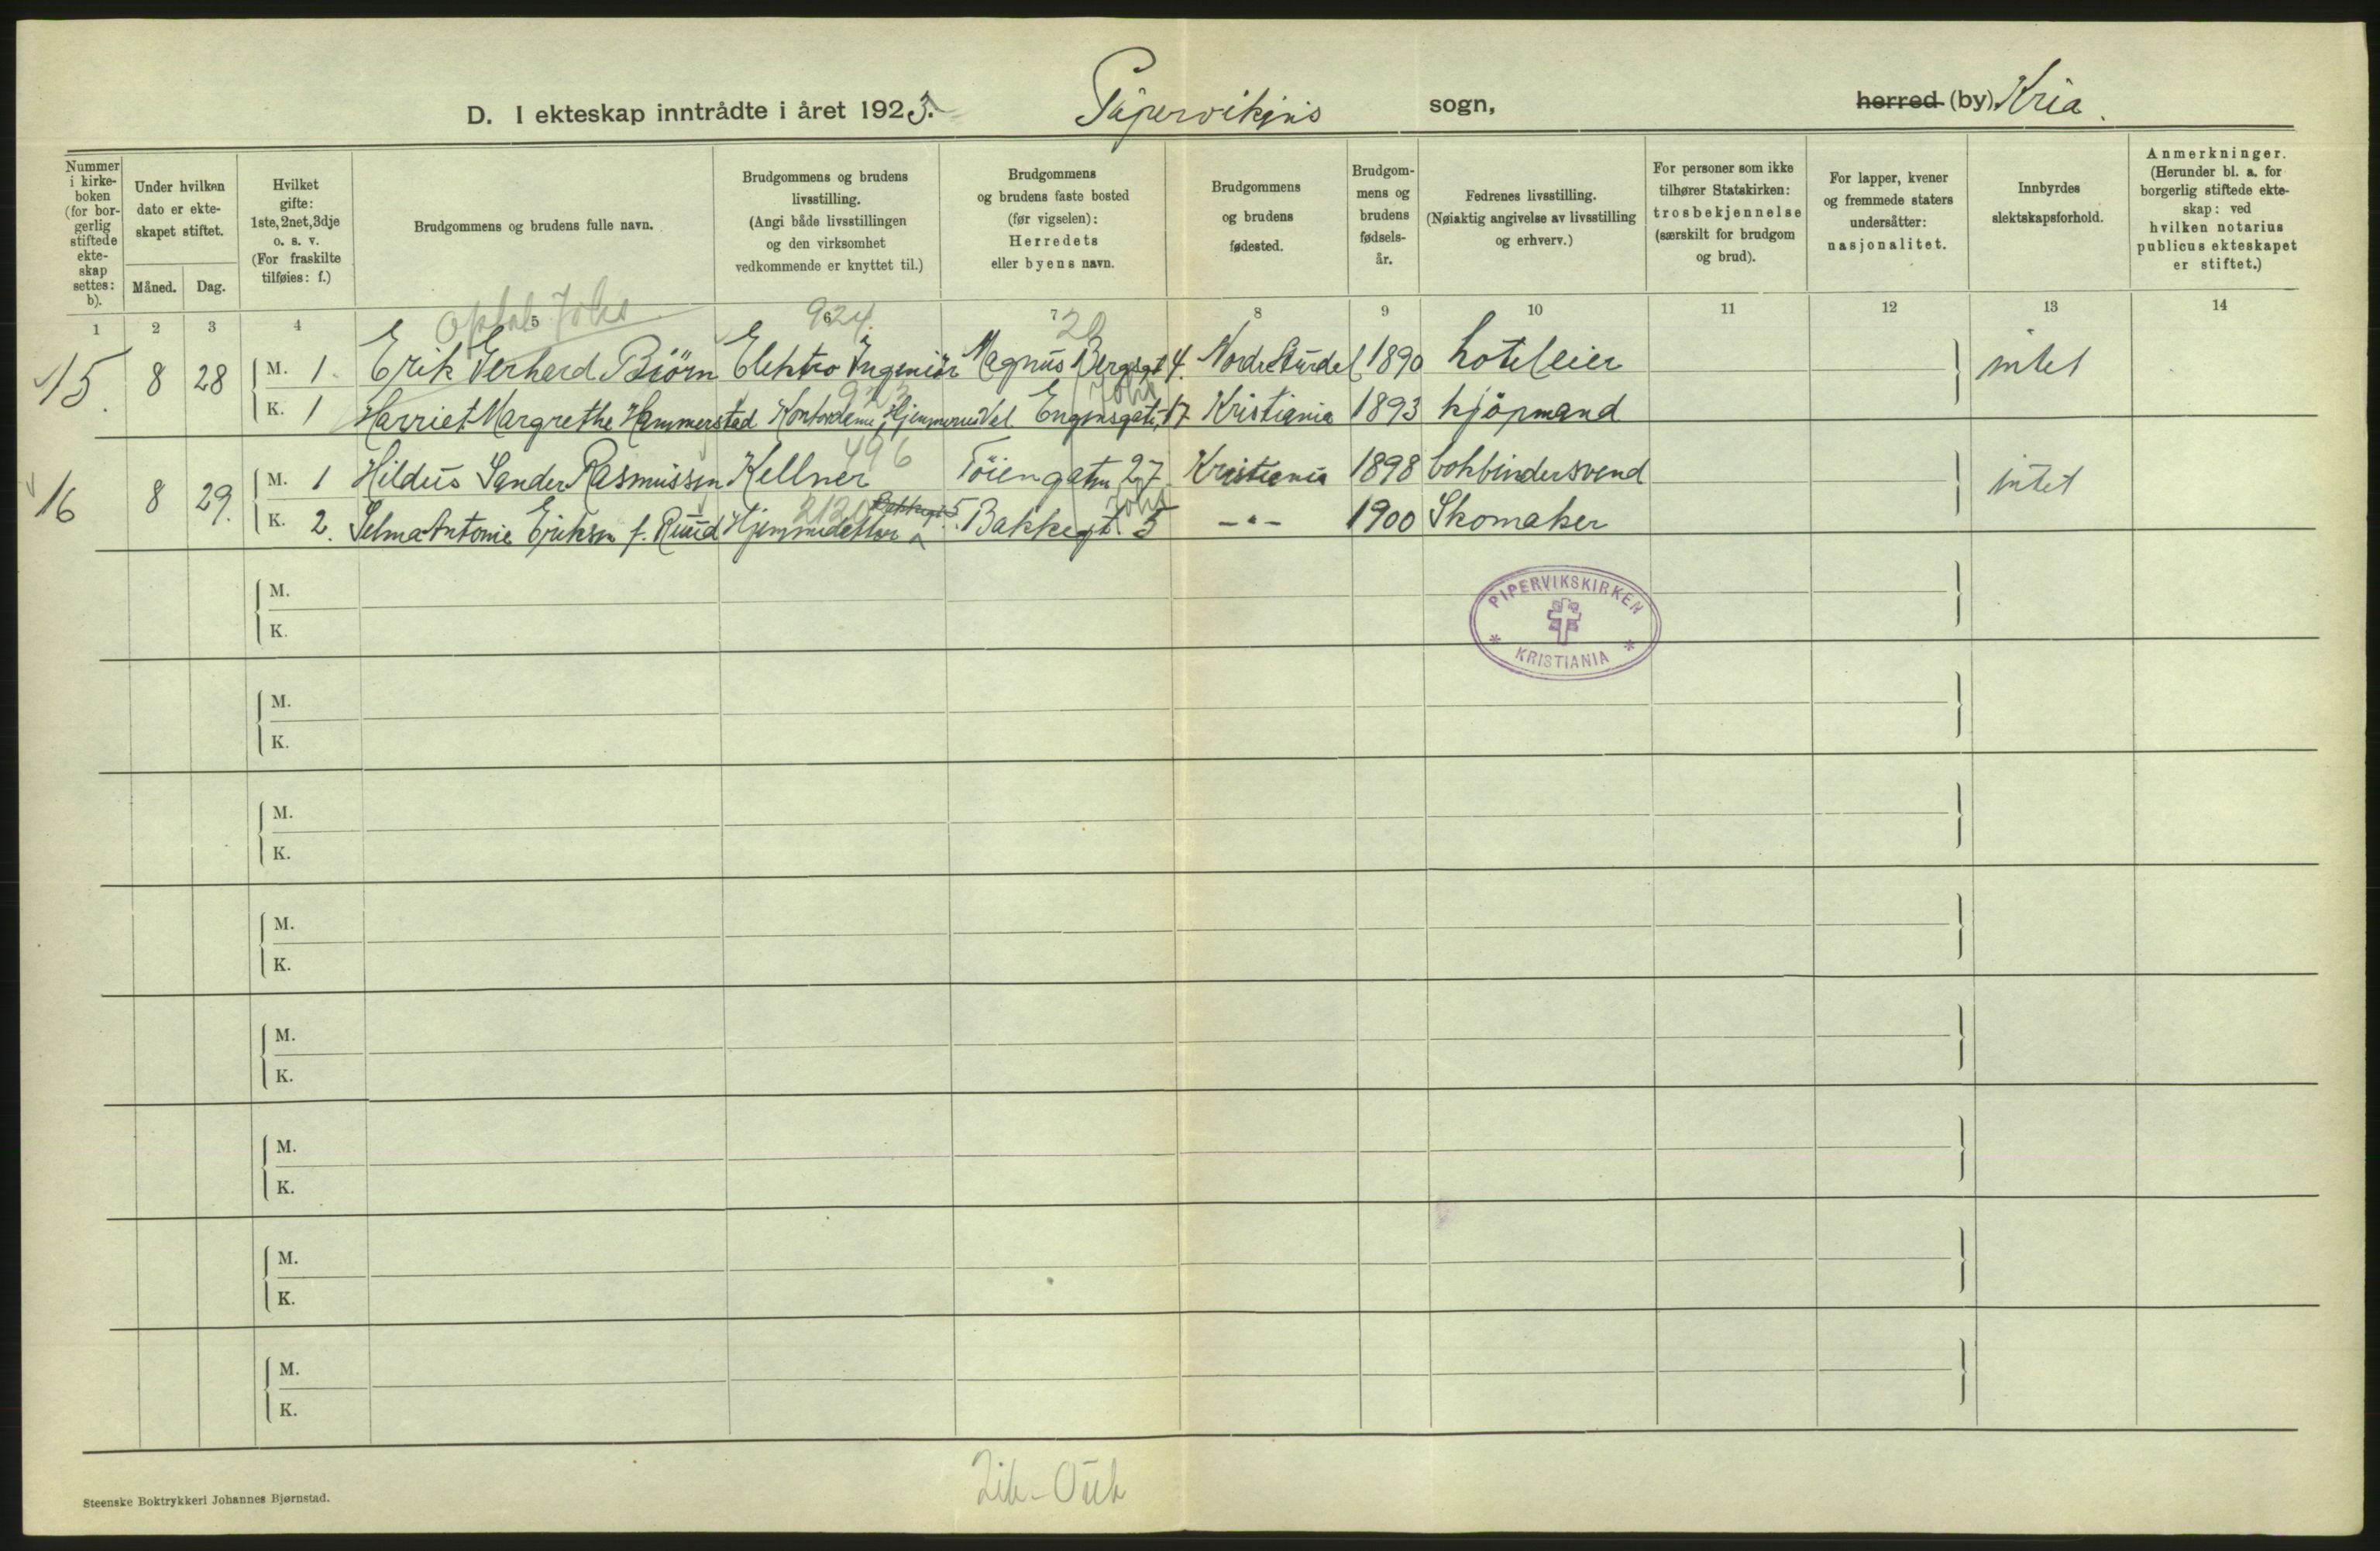 D. I ekteskap inntrådte i året 1923. Pipervikens sogn, herred (by) Kria.
Nummer i kirkeboken (for borgerlig stiftede ekteskap settes: b).
Under hvilken dato er ekteskapet stiftet.
Måned. Dag.
Hvilket gifte: 1ste, 2net, 3dje o. s. v. (For fraskilte tilføies: f.)
Brudgommens og brudens fulle navn.
Brudgommens og brudens livsstilling. (Angi både livsstillingen og den virksomhet vedkommende er knyttet til.)
Brudgommens og brudens faste bosted (før vigselen): Herredets eller byens navn.
Brudgommens og brudens fødested.
Brudgommens og brudens fødselsår.
Fedrenes livsstilling. (Nøiaktig angivelse av livsstilling og erhverv.)
For personer som ikke tilhører Statskirken: trosbekjennelse (særskilt for brudgom og brud).
For lapper, kvener og fremmede staters undersåtter: nasjonalitet.
Innbyrdes slektskapsforhold.
Anmerkninger. (Herunder bl. a. for borgerlig stiftede ekteskap: ved hvilken notarius publicus ekteskapet er stiftet.)
1 2 3 4 5 6 7 8 9 10 11 12 13 14
924. 20
15. 8 28 M. 1 Erik Gerhard Biörn Elektro Ingeniör Magnus Bergsgt 4. Nordre Aurdal 1890 hoteleier intet
K. 1 Harriet Margrethe Hammerstad Kontordame, Hjemmeru Engensgate 17 Kristiania 1893 kjöpmand
496
16 8 29. M. 1 Hildus Sander Rasmussen Kellner Töiengaten 27 Kristiania 1898 bokbindersvend intet
2120 Bakkegt 5
K. 2. Selma Antonie Eriksen f. Ruud Hjemmedatter Bakkegt. 5 -"- 1900 Skomaker
M.
K.
PIPERVIKSKIRKEN
* KRISTIANIA *
M.
K.
M.
K.
M.
K.
M.
K.
M.
K.
M.
K.
M.
K.
Steenske Boktrykkeri Johannes Bjørnstad.